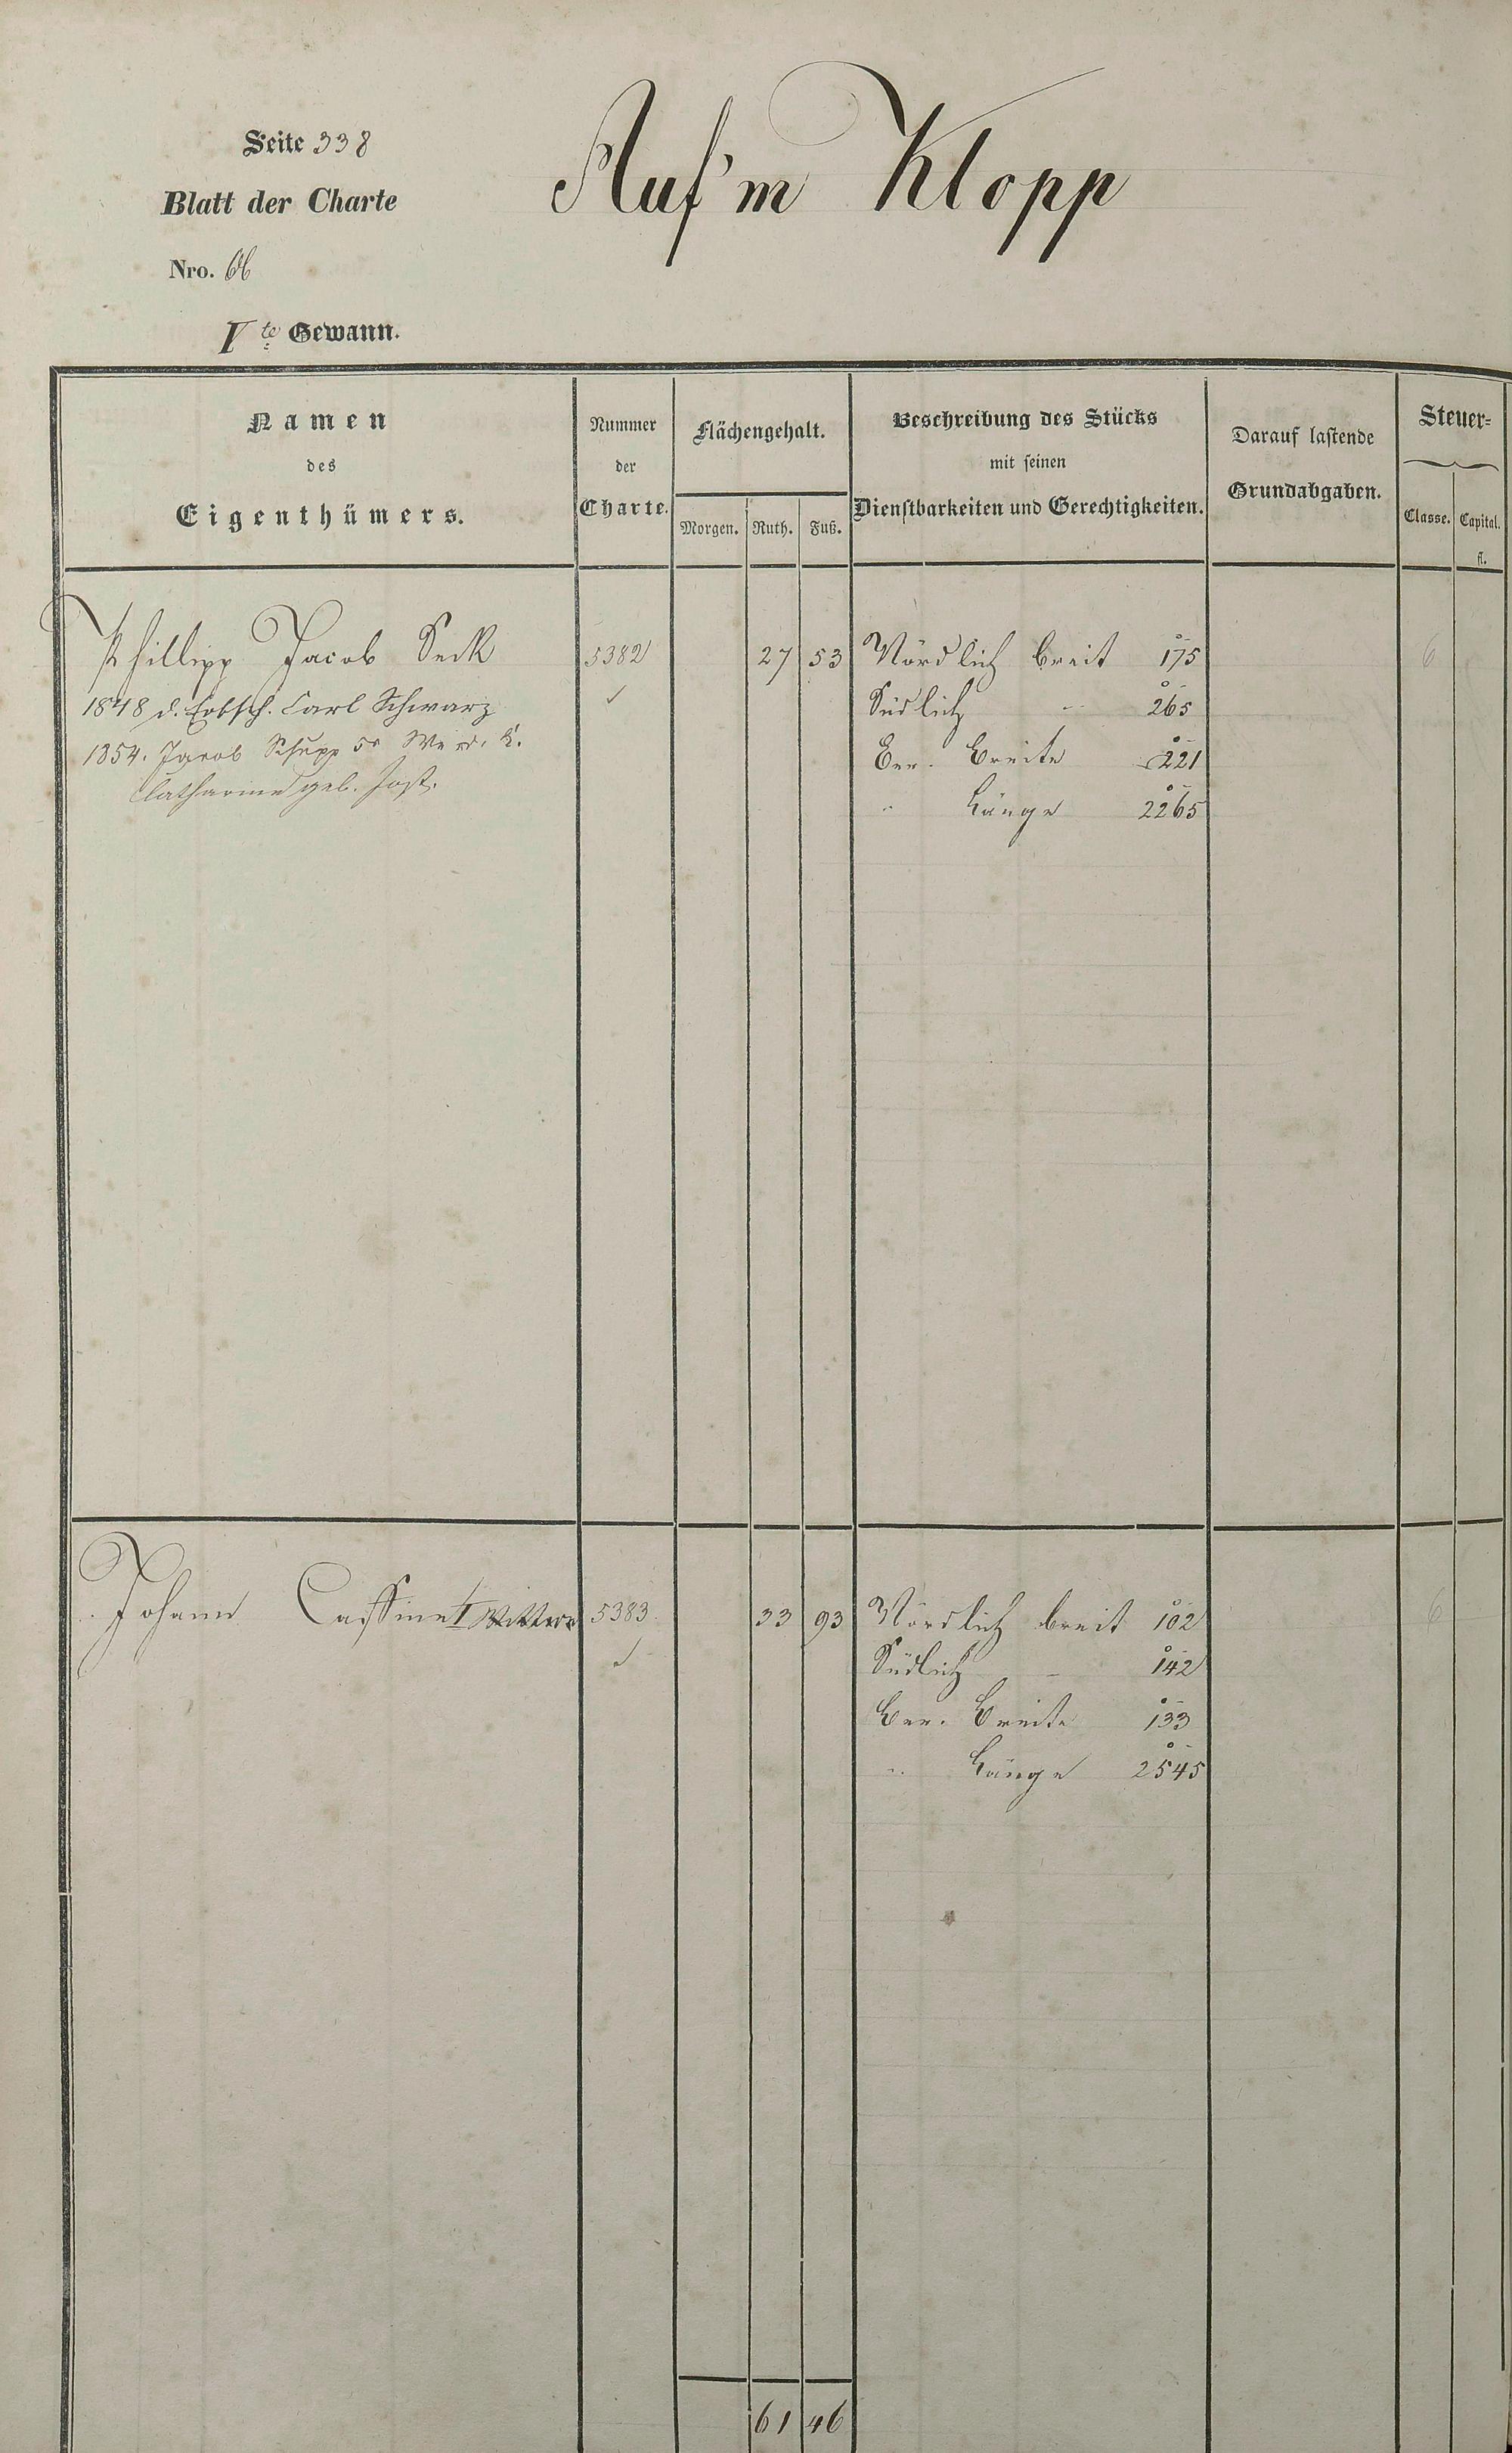 Seite 338
Auf'm Klopp
Blatt der Charte
Nro. 66
Vte Gewann.
Namen
des
Eigenthümers.
Nummer
der
Charte.
Flächengehalt.
Morgen. Ruth. Fuß.
Beschreibung des Stücks
mit seinen
Dienstbarkeiten und Gerechtigkeiten.
Darauf lastende
Grundabgaben.
Steuer-
Classe. Capital.
fl.
Phillipp Jacob Seck 5382 27 53 Nördlich breit 175 6
1848 d. Erbsch. Carl Schwarz Südlich " 265
1854. Jacob Schupp Ber. Breite 221
Catharine geb. Jost. " Länge 2265
Johann Cassine I 5383 33 93 Nördlich breit 102 6
Südlich - 142
Ber. Breite 133
" Länge 2545
61 46